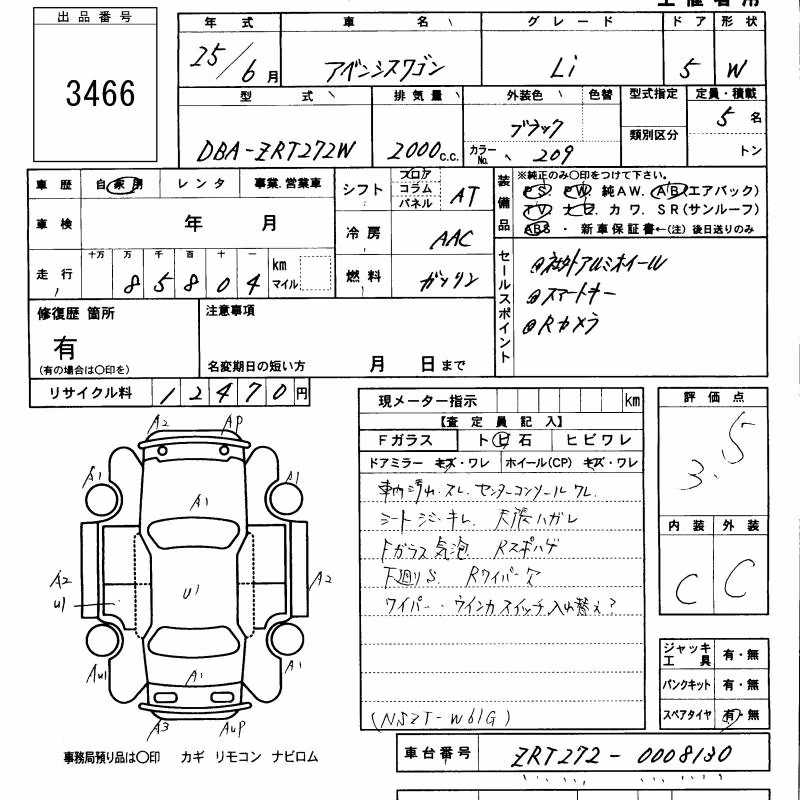 出品番号
3466
年式 車名 グレード ドア 形状
25/6月 アベンシスワゴン Li 5 W
型式 排気量 外装色 色替 型式指定 定員・積載
類別区分
DBA-ZRT272W 2000c.c. ブラック カラーNo. 209 5名
トン
車歴 自家用 レンタ 事業.営業車
車検 年 月
走行 十万 万 千 百 十 一 km マイル
8 5 8 0 4
シフト フロア コラム パネル AT
冷房 AAC
燃料 ガソリン
装備品
※純正のみ〇印をつけて下さい。
PS PW 純AW. AB(エアバック)
TV ナビ. カワ. SR(サンルーフ)
ABS ・ 新車保証書←(注) 後日送りのみ
セールスポイント
@社外アルミホイール
@スマートキー
@Rカメラ
修復歴 箇所
有
(有の場合は〇印を)
注意事項
名変期日の短い方 月 日まで
リサイクル料 12470円
現メーター指示 km
【査定員記入】
Fガラス ト ビ 石 ヒビワレ
ドアミラー キズ・ワレ ホイール(CP) キズ・ワレ
車内汚れ.スレ. センターコンソールワレ.
シートシミ・キレ. 天張ハガレ
Fガラス気泡. Rスポハゲ
下廻りS. Rワイパー欠
ワイパー・ウインカスイッチ入れ替え?
(NSZT-W61G)
評価点
3.5
内装 外装
C C
ジャッキ工具 有・無
パンクキット 有・無
スペアタイヤ 有・無
A2 AP
A1 A1
A1
A2 A2
U1 U1
AU1 A1 A1
A3 AUP
事務局預り品は〇印 カギ リモコン ナビロム
車台番号 ZRT272-0008130